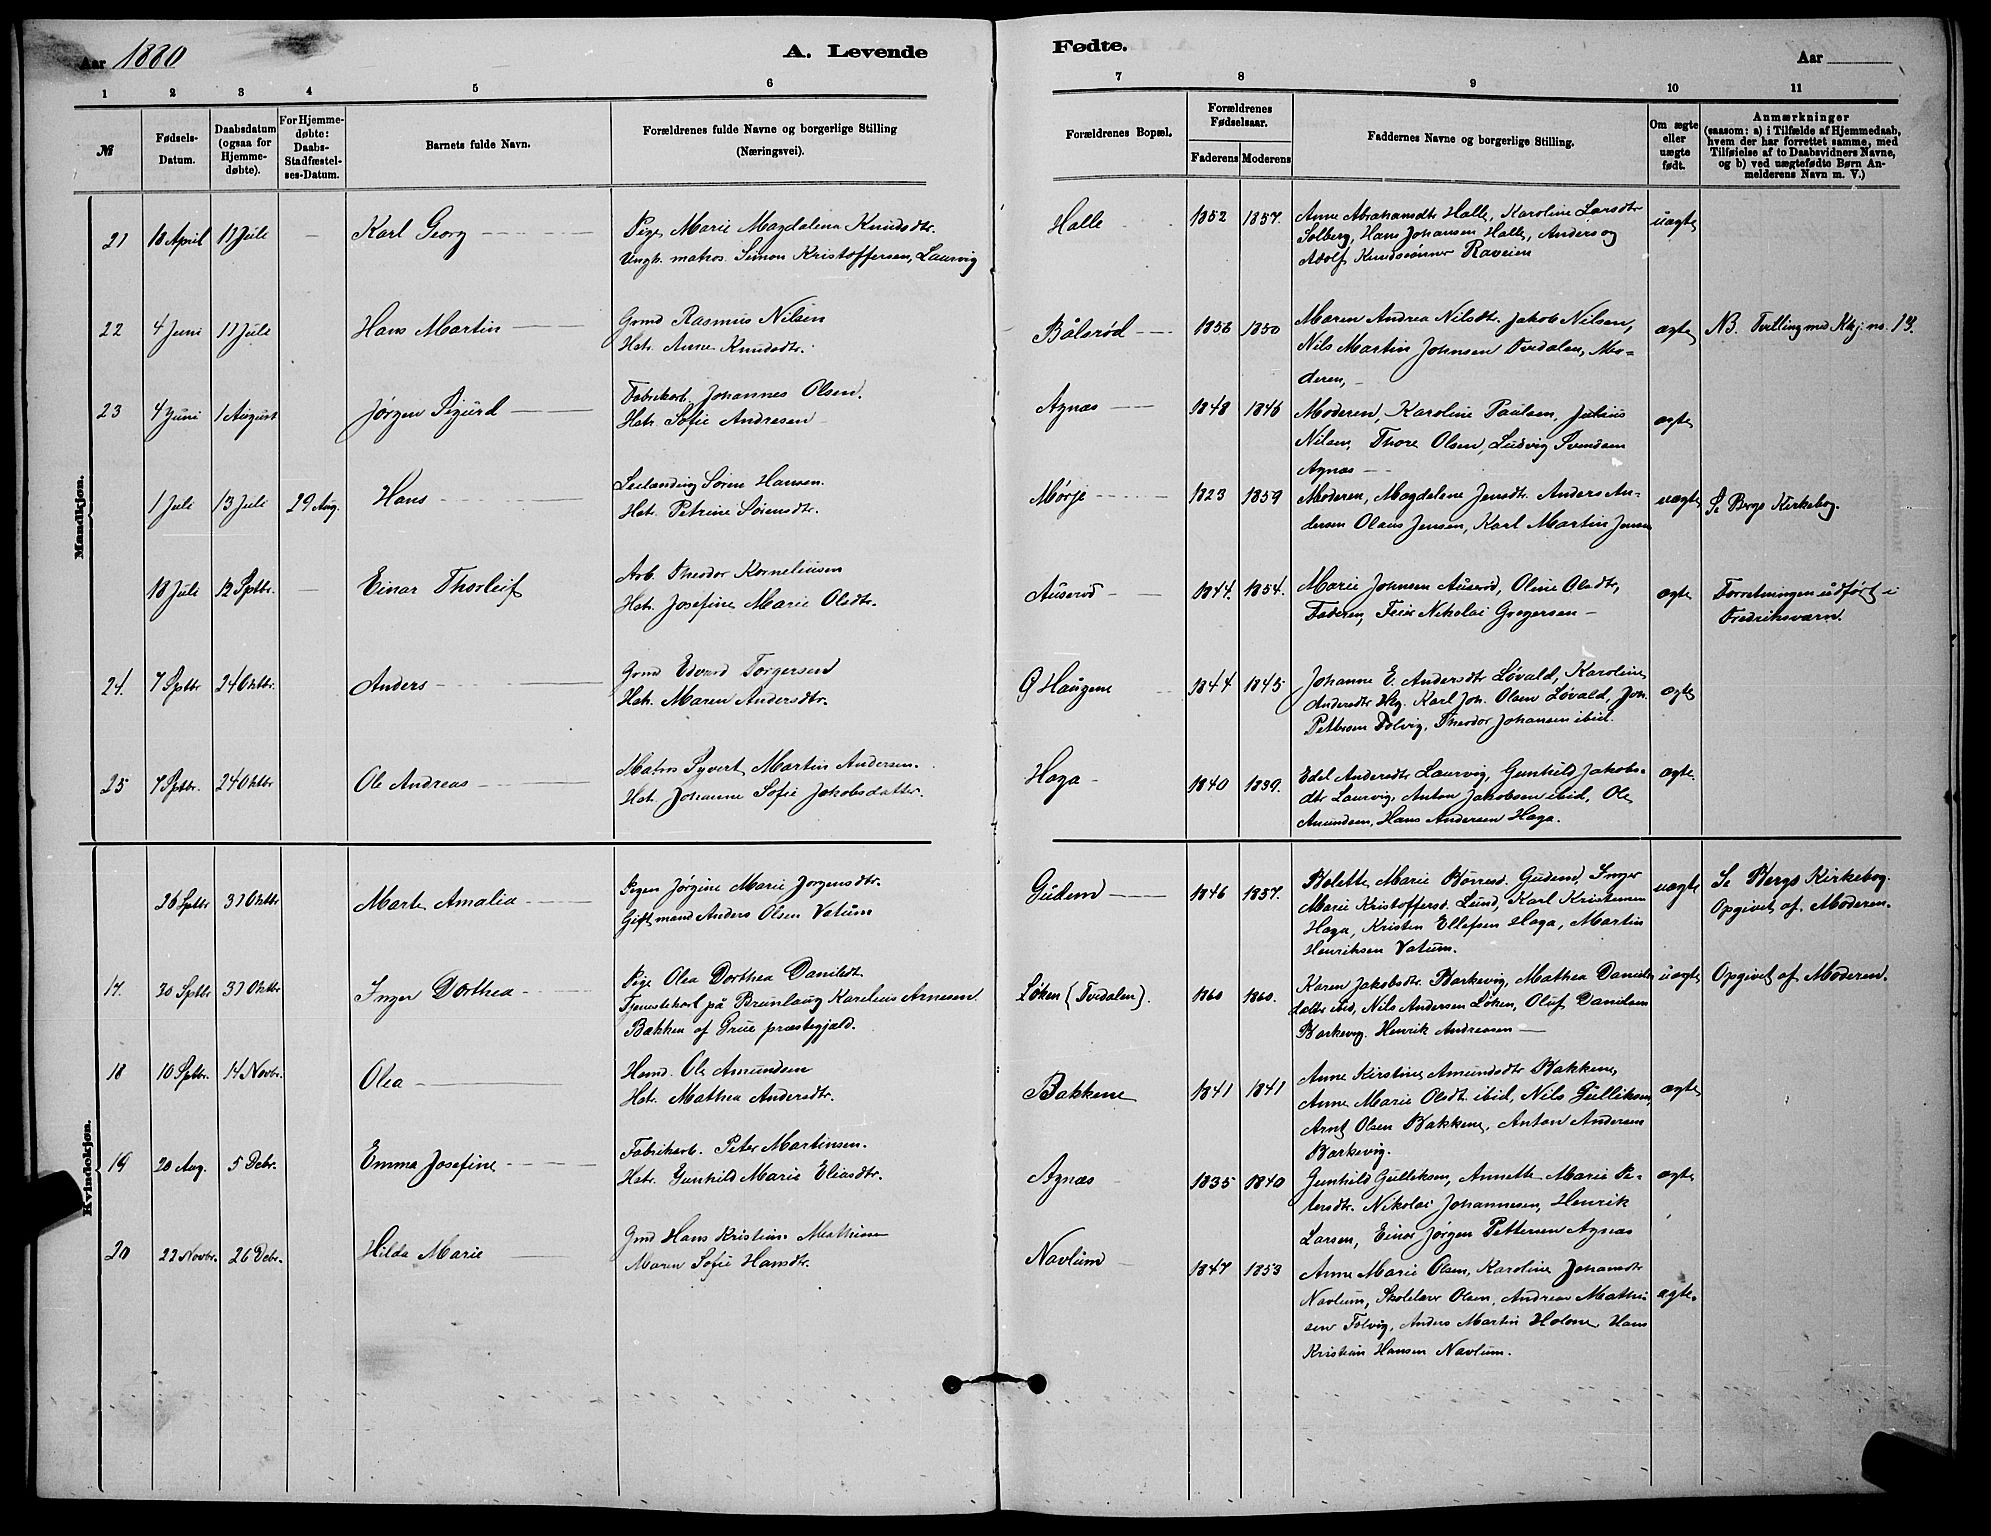 Aar 1880
A. Levende
Fødte.
Aar
1 2 3 4 5 6 7 8 9 10 11
№
Fødsels-Datum.
Daabsdatum (ogsaa for Hjemme-døbte).
For Hjemme-døbte: Daabs-Stadfæstel-ses-Datum.
Barnets fulde Navn.
Forældrenes fulde Navne og borgerlige Stilling
(Næringsvei).
Forældrenes Bopæl.
Forældrenes Fødselsaar.
Faderens Moderens
Faddernes Navne og borgerlige Stilling.
Om ægte eller uægte født.
Anmærkninger
(saasom: a) i Tilfælde af Hjemmedaab,
hvem der har forrettet samme, med
Tilføielse af to Daabsvidners Navne,
og b) ved uægtefødte Børn An-
melderens Navn m. V.)
Mandkjøn.
21 18 April 11 Juli – Karl Georg
Pige Marie Magdalena Knudsdtr.
Ungk. matros. Simon Kristoffersen, Laurvig
Halle 1852 1857.
Anne Abrahamsdtr Halle, Karoline Larsdtr
Solberg, Hans Johansen Halle, Anders og
Adolf Knudssønner Raveien
uægte
22 4 Juni 11 Juli Hans Martin
Grmd Rasmus Nilsen
Hstr. Anne Knudsdtr.
Bålsrød 1856 1850
Maren Andrea Nilsdtr. Jakob Nilsen,
Nils Martin Johnsen Tvedalen, Mo-
deren,
ægte
NB. Tvilling med Kkj: no. 13.
23 4 Juni 1 August Jørgen Sigurd
Fabrikarb. Johannes Olsen.
Hstr. Sofie Andresen
Agnæs 1848 1846
Moderen, Karoline Paulsen, Julius
Nilsen, Thore Olsen, Ludvig Svendsen
Agnæs
ægte
1 Juli 13 Juli 29 Aug. Hans
Søren Hansen.
Hstr. Petrine Sörensdtr.
Mørje 1823 1859
Moderen, Magdalene Jensdtr. Anders An-
dersen Olaus Jensen, Karl Martin Jensen
uægte
Se Bergs Kirkebog.
18 Juli 12 Sptbr. – Einar Thorleif
Arb. Theodor Korneliusen
Hstr. Josefine Marie Olsdtr.
Auserød 1844. 1854.
Marie Johnsen Auserød, Oline Olsdtr,
Faderen, Feier Nikolai Gregersen
ægte
Forretningen udført i
Fredriksværn.
24. 7 Sptbr 24 Oktbr. Anders
Grmd Edvard Torgersen
Hstr. Maren Andersdtr.
Ø Haugene 1844 1845
Johanne E. Andersdtr Løvald, Karoline
Andersdtr Hkg. Karl Joh. Olsen Løvald, Joh.
Pettersen Folvig, Theodor Johansen ibid.
ægte
25 7 Sptbr. 24 Oktbr Ole Andreas
Matros Syvert Martin Andersen.
Hstr. Johanne Sofie Jakobsdatter.
Haga 1840 1839.
Edel Andersdtr Laurvig, Gunhild Jakobs-
dtr Laurvig, Anton Jakobsen ibid, Ole
Amundsen, Hans Andersen Haga.
ægte.
Kvindekjøn.
26 Sptbr 31 Oktbr Marte Amalia
Pigen Jørgine Marie Jørgensdtr.
Gift mand Anders Olsen Vatum
Gudem 1846 1857.
Bolette Marie Børresd. Gudem, Inger
Marie Kristoffersd. Lund, Karl Kristensen
Haga, Kristen Ellefsen Haga, Martin
Henriksen Vatum.
uægte
Se Bergs Kirkebog.
Opgivet af Moderen.
17. 20 Sptbr 31 Oktbr Inger Dorthea
Pige Olea Dorthea Danilsdt.
Tjenestekarl på Brunlaug Karelius Arnesen
Bakken af Grue præstegjæld.
Løken (Tvedalen). 1860 1860.
Karen Jakobsdtr. Barkevig, Mathea Daniels-
datter ibid, Nils Andersen Løken, Oluf Danilsen
Barkevig. Henrik Andreasen
uægte
Opgivet af Moderen.
18 10 Sptbr. 14 Novbr. Olea
Hmd. Ole Amundsen
Hstr. Mathea Andersdtr.
Bakkene 1841 1841
Anne Kirstine Amundsdtr Bakkene,
Anne Marie Olsdt. ibid, Nils Gulliksen,
Arnt Olsen Bakkene, Anton Andersen
Barkevig.
ægte
19 20 Aug. 5 Debr. Emma Josefine
Fabrikarb. Peter Martinsen.
Hstr. Gunhild Marie Eliasdtr.
Agnæs 1835 1840
Gunhild Gulliksen, Annette Marie Pe-
tersdtr. Nikolai Johannesen, Henrik
Larsen, Einar Jørgen Pettersen Agnæs
ægte
20 22 Novbr. 26 Debr. Hilda Marie
Gmd Hans Kristian Mathisen
Maren Sofie Hansdtr.
Navlum 1847 1853
Anne Marie Olsen, Karoline Johansdtr
Navlum, Skolelærer Olsen, Andreas Mathi-
sen Folvig, Anders Martin Holene, Hans
Kristian Hansen Navlum.
ægte.